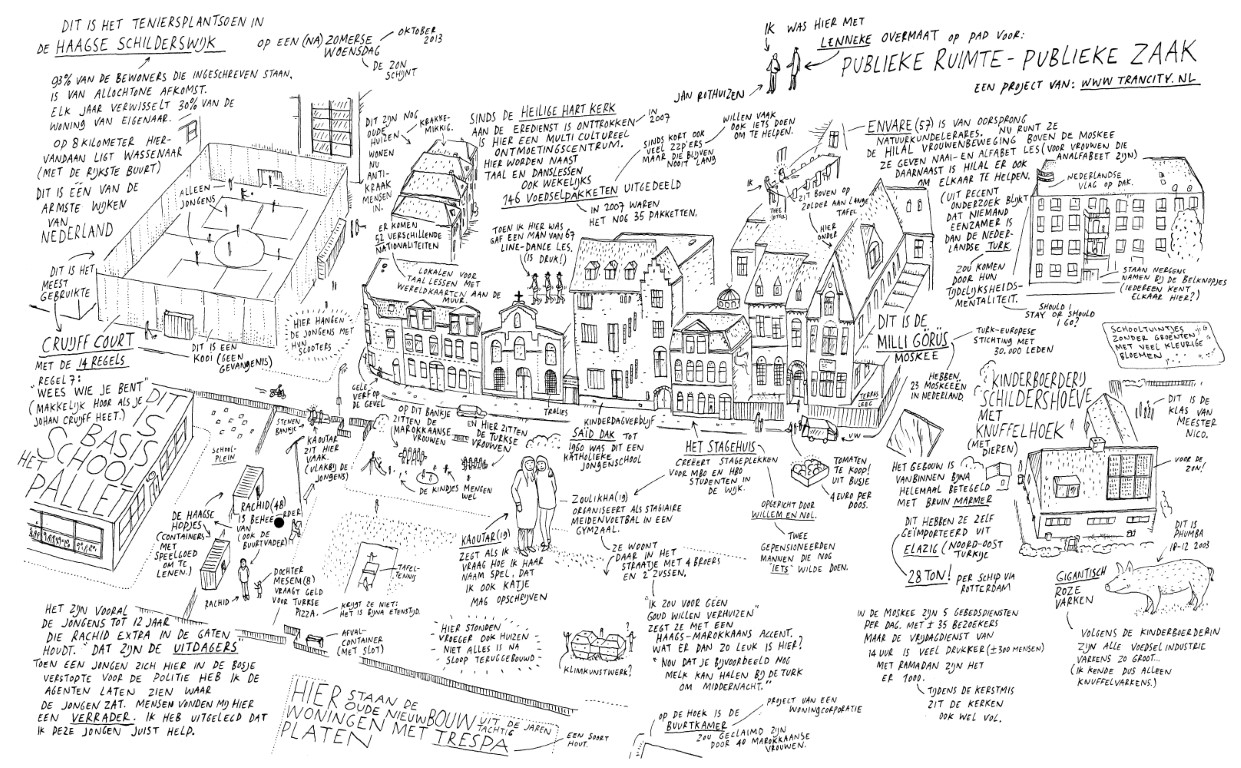 DIT IS HET TENIERSPLANTSOEN IN
DE HAAGSE SCHILDERSWIJK
OP EEN (NA)ZOMERSE
WOENSDAG
OKTOBER
2013
DE ZON
SCHIJNT
93% VAN DE BEWONERS DIE INGESCHREVEN STAAN,
IS VAN ALLOCHTONE AFKOMST.
ELK JAAR VERWISSELT 30% VAN DE
WONING VAN EIGENAAR.
OP 8 KILOMETER HIER-
VANDAAN LIGT WASSENAAR
(MET DE RIJKSTE BUURT)
DIT IS ÉÉN VAN DE
ARMSTE WIJKEN
VAN
NEDERLAND
ALLEEN
JONGENS
DIT IS HET
MEEST
GEBRUIKTE
CRUIJFF COURT
MET DE 14 REGELS
REGEL 7:
"WEES WIE JE BENT"
(MAKKELIJK HOOR ALS JE
JOHAN CRUIJFF HEET.)
DIT IS EEN
KOOI (GEEN
GEVANGENIS)
HIER HANGEN
DE JONGENS MET
HUN
SCOOTERS
DIT ZIJN NOG
OUDE
HUIZEN
KRAKKE-
MIKKIG.
WONEN
NU
ANTI-
KRAAK
MENSEN
IN.
SINDS DE HEILIGE HART KERK
AAN DE EREDIENST IS ONTTROKKEN
IN
2007
IS HIER EEN MULTI CULTUREEL
ONTMOETINGSCENTRUM.
HIER WORDEN NAAST
TAAL EN DANSLESSEN
OOK WEKELIJKS
146 VOEDSELPAKKETEN UITGEDEELD
IN 2007 WAREN
HET NOG 35 PAKKETTEN.
SINDS KORT OOK
VEEL ZZP'ERS
MAAR DIE BLIJVEN
NOOIT LANG
WILLEN VAAK
OOK IETS DOEN
OM TE HELPEN.
ER KOMEN
52 VERSCHILLENDE
NATIONALITEITEN
TOEN IK HIER WAS
GAF EEN MAN VAN 67
LINE-DANCE LES.
(IS DRUK!)
LOKALEN VOOR
TAAL LESSEN MET
WERELDKAARTEN AAN DE
MUUR.
IK WAS HIER MET
LENNEKE OVERMAAT OP PAD VOOR:
PUBLIEKE RUIMTE - PUBLIEKE ZAAK
EEN PROJECT VAN: WWW.TRANCITY.NL
JAN ROTHUIZEN
ENVARE (57) IS VAN OORSPRONG
NATUURKUNDELERARES. NU RUNT ZE
DE HILAL VROUWENBEWEGING BOVEN DE MOSKEE
ZE GEVEN NAAI- EN ALFABET LES (VOOR VROUWEN DIE
ANALFABEET ZIJN)
DAARNAAST IS HILAL ER OOK
OM ELKAAR TE HELPEN.
(UIT RECENT
ONDERZOEK BLIJKT
DAT NIEMAND
EENZAMER IS
DAN DE NEDER-
LANDSE TURK
ZOU KOMEN
DOOR HUN
TIJDELIJKSHEIDS-
MENTALITEIT.
IK
ZIT BOVEN OP
ZOLDER AAN LANGE
TAFEL
HIER
ONDER
NEDERLANDSE
VLAG OP DAK.
STAAN NERGENS
NAMEN BIJ DE BELKNOPJES
(IEDEREEN KENT
ELKAAR HIER?)
SHOULD I
STAY OR SHOULD
I GO?
DIT IS DE
MILLI GÖRÜS
MOSKEE
TURK-EUROPESE
STICHTING MET
30.000 LEDEN
HEBBEN
23 MOSKEEËN
IN NEDERLAND.
SCHOOLTUINTJES
ZONDER GROENTEN
MET VEEL KLEURIGE
BLOEMEN
KINDERBOERDERIJ
SCHILDERSHOEVE
MET
KNUFFELHOEK
(MET
DIEREN)
DIT IS
DE
KLAS VAN
MEESTER
NICO.
VOOR
DE ZON!
DIT IS
PHUMBA
18-12 2003
GIGANTISCH
ROZE
VARKEN
VOLGENS DE KINDERBOERDERIN
ZIJN ALLE VOEDSEL INDUSTRIE
VARKENS ZO GROOT...
(IK KENDE DUS ALLEEN
KNUFFELVARKENS.)
DIT
IS
BASIS
SCHOOL
HET
PALLET
SCHOOL-
PLEIN
STENEN
BANKJE
KAOUTAR
ZIT HIER
VAAK.
(VLAKBIJ DE
JONGENS)
GELE
VERF OP
DE GEVEL
OP DIT BANKJE
ZITTEN DE
MAROKKAANSE
VROUWEN
EN HIER ZITTEN
DE TURKSE
VROUWEN
DE KINDJES MENGEN
WEL
TRALIES
KINDERDAGVERBLIJF
SAÏD DAK TOT
1960 WAS DIT EEN
KATHOLIEKE
JONGENSCHOOL
HET STAGEHUIS
CREËERT STAGEPLEKKEN
VOOR MBO EN HBO
STUDENTEN IN
DE WIJK.
OPGERICHT DOOR
WILLEM EN NOL.
TWEE
GEPENSIONEERDEN
MANNEN DIE NOG
"IETS" WILDE DOEN.
TERRAS
LEEG
VW
TOMATEN
TE KOOP!
UIT BUSJE
4 EURO PER
DOOS.
HET GEBOUW IS
VANBINNEN BIJNA
HELEMAAL BETEGELD
MET BRUIN MARMER
DIT HEBBEN ZE ZELF
GEÏMPORTEERD UIT
ELAZIG (NOORD-OOST
TURKIJE
28 TON! PER SCHIP VIA
ROTTERDAM
IN DE MOSKEE ZIJN 5 GEBEDSDIENSTEN
PER DAG. MET ± 35 BEZOEKERS
MAAR DE VRIJDAGDIENST VAN
14 UUR IS VEEL DRUKKER (±300 MENSEN)
MET RAMADAN ZIJN HET
ER 1000.
TIJDENS DE KERSTMIS
ZIT DE KERKEN
OOK WEL VOL.
DE HAAGSE
HOPJES
(CONTAINERS
MET
SPEELGOED
OM TE
LENEN.)
RACHID (48)
IS BEHEERDER
VAN
(OOK DE
BUURTVADER)
RACHID
DOCHTER
MESEM (8)
VRAAGT GELD
VOOR TURKSE
PIZZA.
KRIJGT ZE NIET:
HET IS BIJNA ETENSTIJD.
TAFEL-
TENNIS
AFVAL-
CONTAINER
(MET SLOT)
KAOUTAR (19)
ZEGT ALS IK
VRAAG HOE IK HAAR
NAAM SPEL, DAT
IK OOK KATJE
MAG OPSCHRIJVEN
ZOULIKHA (19)
ORGANISEERT ALS STAGIAIRE
MEIDENVOETBAL IN EEN
GYMZAAL.
ZE WOONT
DAAR IN HET
STRAATJE MET 4 BROERS
EN 2 ZUSSEN.
"IK ZOU VOOR GÉÉN
GOUD WILLEN VERHUIZEN"
ZEGT ZE MET EEN
HAAGS-MAROKKAANS ACCENT.
WAT ER DAN ZO LEUK IS HIER?
"NOU DAT JE BIJVOORBEELD NOG
MELK KAN HALEN BIJ DE TURK
OM MIDDERNACHT."
HIER STONDEN
VROEGER OOK HUIZEN
NIET ALLES IS NA
SLOOP TERUGGEBOUWD
KLIMKUNSTWERK?
?
HET ZIJN VOORAL
DE JONGENS TOT 12 JAAR
DIE RACHID EXTRA IN DE GATEN
HOUDT. "DAT ZIJN DE UITDAGERS"
TOEN EEN JONGEN ZICH HIER IN DE BOSJE
VERSTOPTE VOOR DE POLITIE HEB IK DE
AGENTEN LATEN ZIEN WAAR
DE JONGEN ZAT. MENSEN VONDEN MIJ HIER
EEN VERRADER. IK HEB UITGELEGD DAT
IK DEZE JONGEN JUIST HELP.
HIER STAAN DE
OUDE NIEUWBOUW UIT DE JAREN
TACHTIG
WONINGEN MET TRESPA
PLATEN
EEN SOORT
HOUT.
OP DE HOEK IS DE
BUURTKAMER
PROJECT VAN EEN
WONINGCORPORATIE
ZOU GECLAIMD ZIJN
DOOR 40 MAROKKAANSE
VROUWEN.